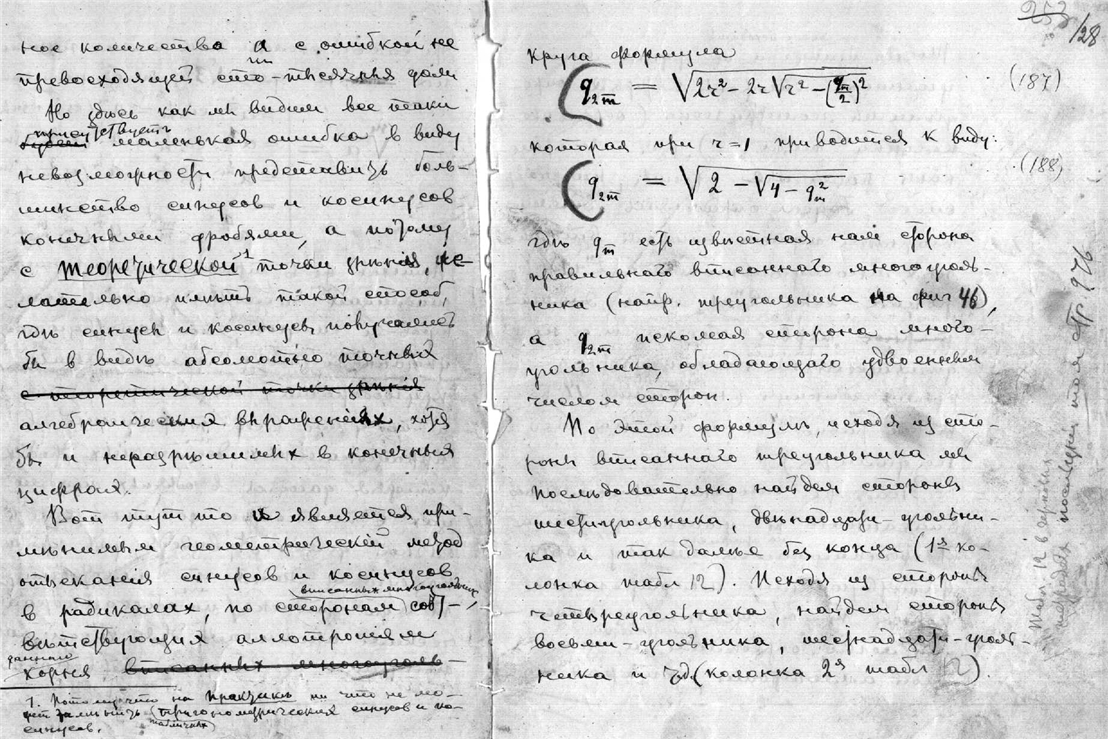 ное количества a с ошибкой не
превосходящей сто-тысячныя доли
Но здесь как мы видим все таки
присутствуетъ
маленькая ошибка в виду
невозможности представить боль-
шинство синусов и косинусов
конечными дробями, а потому
с теоретической¹ точки зрѣния, же-
лательно имѣть такой способ,
гдѣ синусы и косинусы получались
бы в видѣ абсолютно точных
с теоретической точки зрѣния
алгебраических выражениях, хотя
бы и неразрѣшимых в конечных
цифрах.
Вот тут то и является при-
мѣнимым геометрическій метод
отысканія синусов и косинусов
вписанных многоугольник
в радикалах, по сторонам соот-
вѣтствующих аллотропіям
данным
корня вписанных многоуголь-
1. Потому что на практикѣ ни что не мо-
жет замѣнить тригонометрических синусов и ко-
табличных
синусов.
253
128
круга формула
q₂ₘ = √(2r² - 2r√(r² - (qₘ/2)²)) (187)
которая при r=1 приводится к виду:
q₂ₘ = √(2 - √(4 - q²ₘ)) (188)
гдѣ qₘ есть извѣстная нам сторона
правильнаго вписаннаго многоуголь-
ника (напр. треугольника на фиг 46),
а q₂ₘ искомая сторона много-
угольника, обладающаго удвоенным
числом сторон
По этой формулѣ, исходя из сто-
роны вписаннаго треугольника мы
послѣдовательно найдем стороны
шестиугольника, двѣнадцати-угольни-
ка и так далѣе без конца (1я ко-
лонка табл 12). Исходя из стороны
четыреугольника, найдем стороны
восьми-угольника, шестнадцати-уголь-
ника и т.д. (колонка 2я табл 12).
табл 12 в черновых
тетрадях последний том стр 976